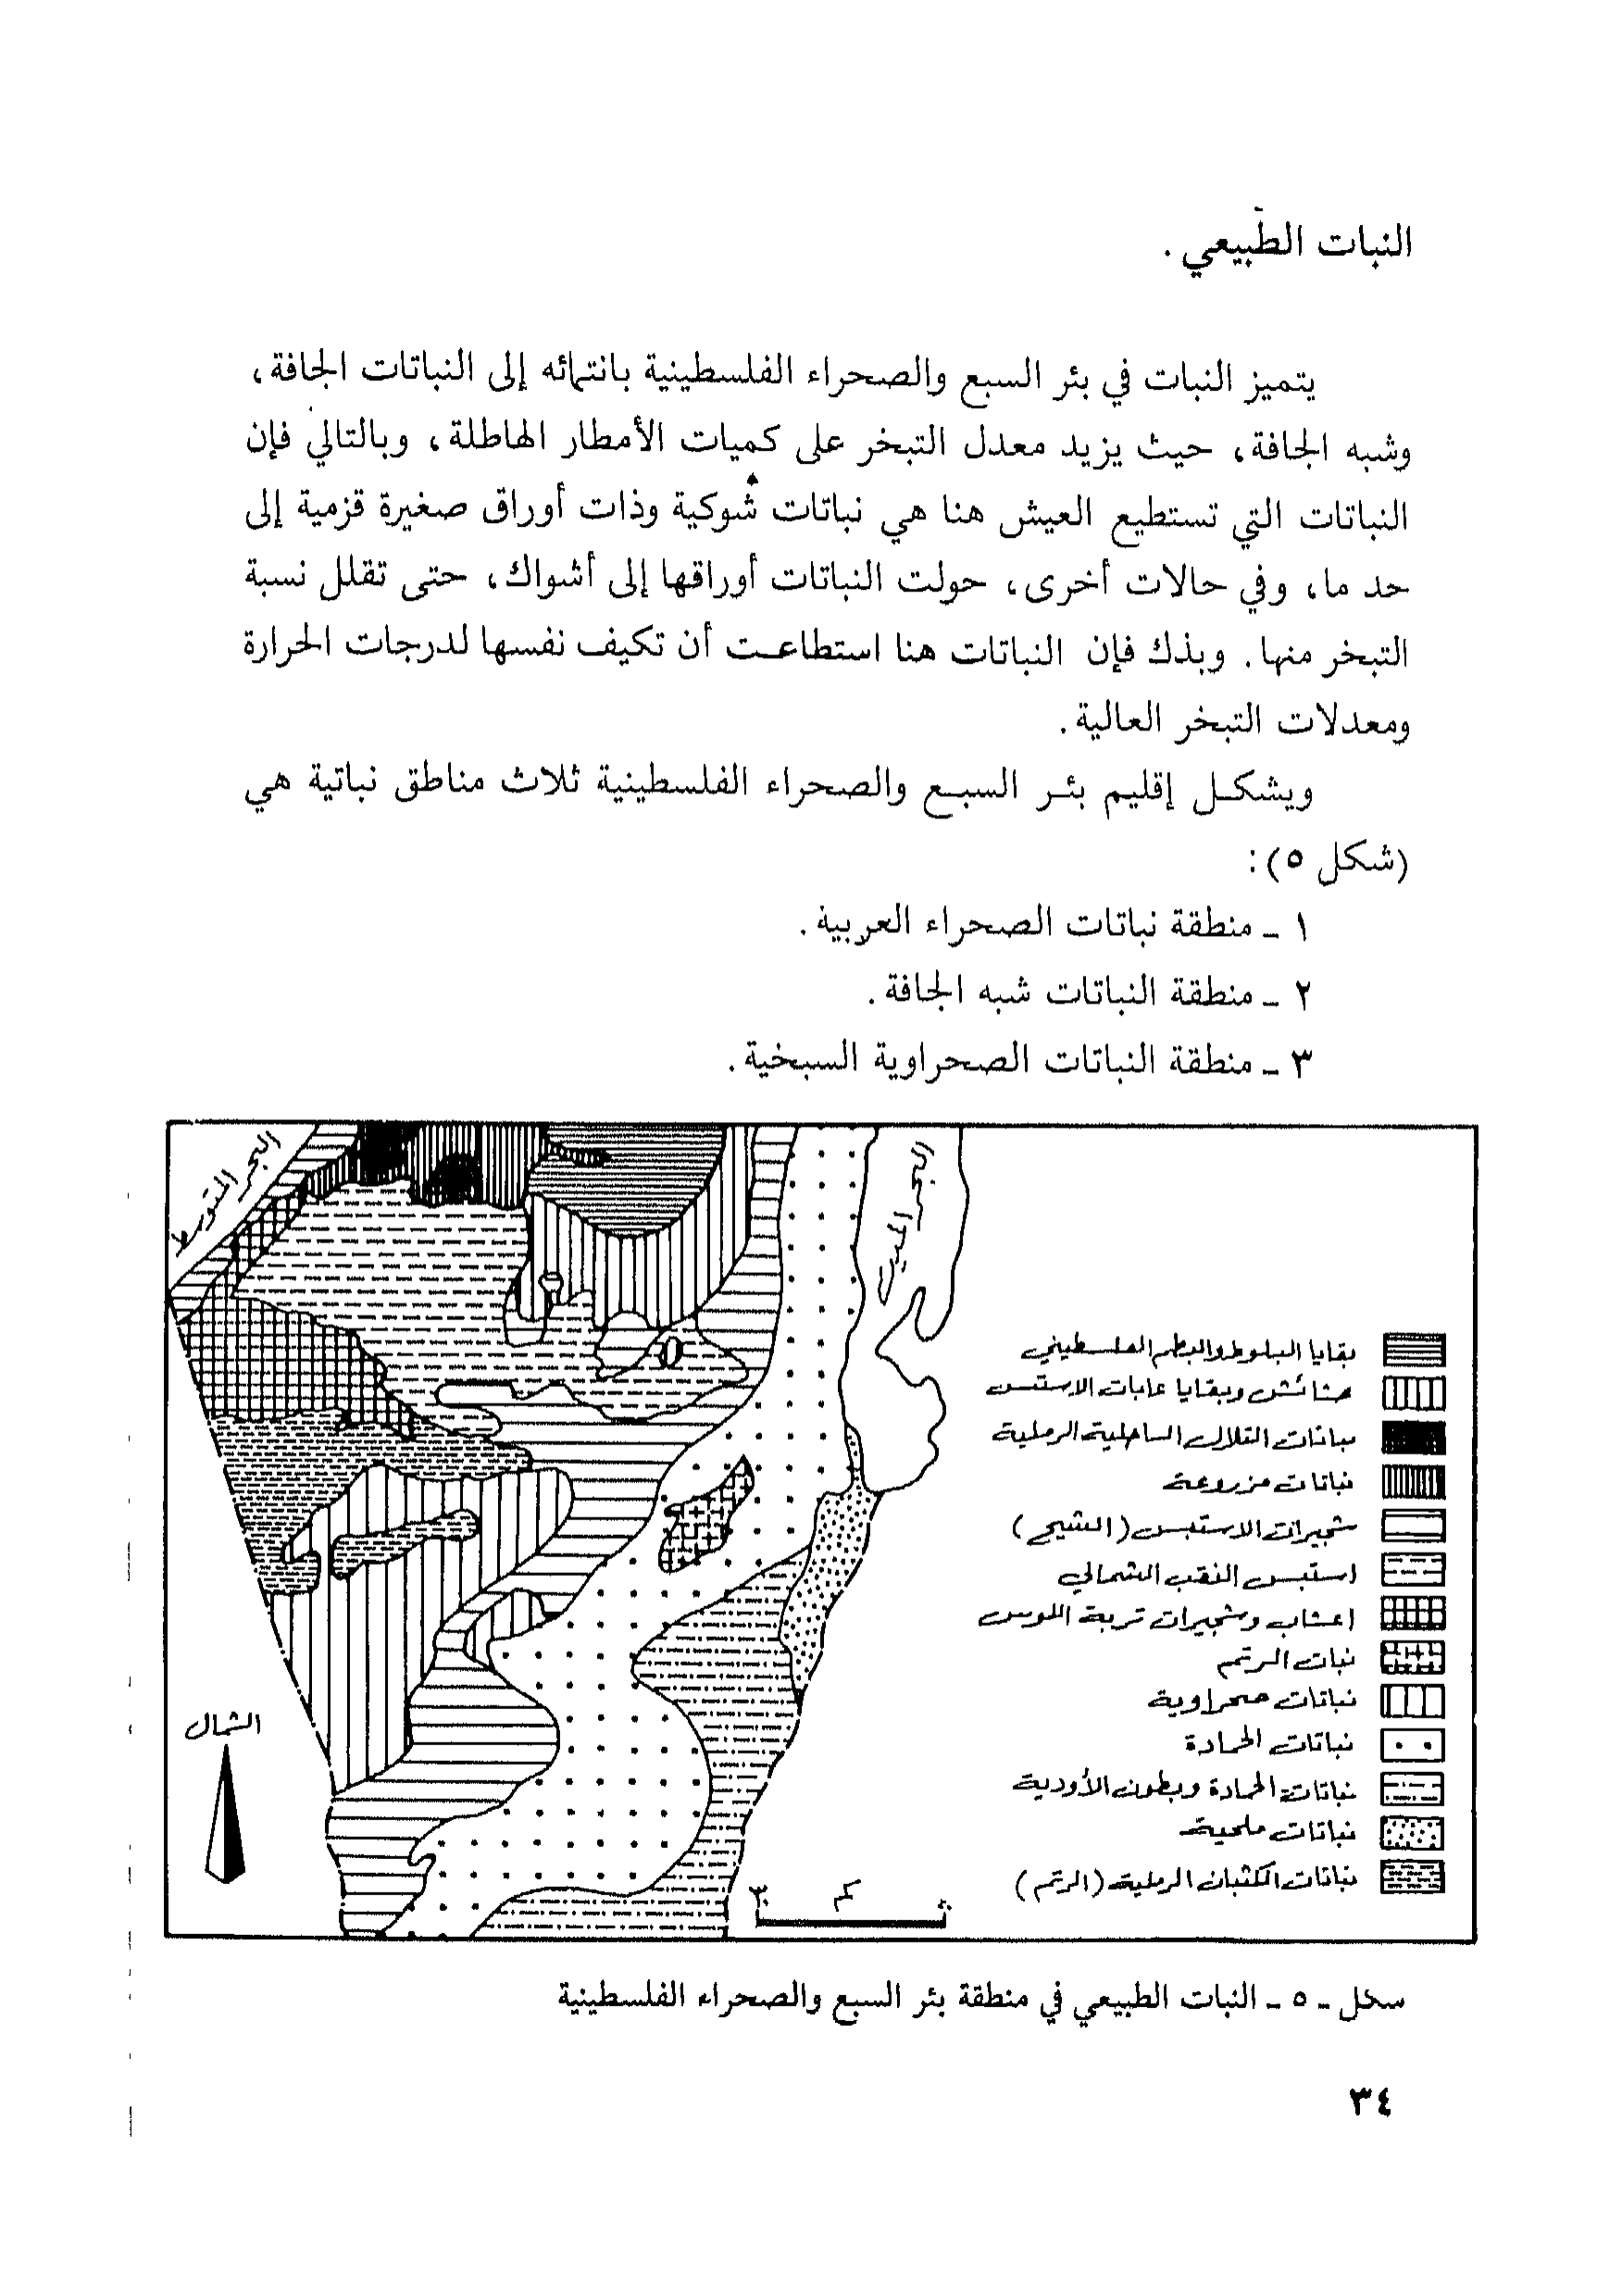 النبات الطّبيعي .
يتميز النبات في بئر السبع والصحراء الفلسطينية بانتمائه إلى النباتات الجافة،
وشبه الجافة، حيث يزيد معدل التبخر على كميات الأمطار الهاطلة، وبالتالي فإن
النباتات التي تستطيع العيش هنا هي نباتات شوكية وذات أوراق صغيرة قزمية إلى
حد ما، وفي حالات أخرى، حولت النباتات أوراقها إلى أشواك، حتى تقلل نسبة
التبخر منها. وبذك فإن النباتات هنا استطاعت أن تكيف نفسها لدرجات الحرارة
ومعدلات التبخر العالية.
ويشكل إقليم بئر السبع والصحراء الفلسطينية ثلاث مناطق نباتية هي
(شكل ٥):
١ - منطقة نباتات الصحراء العربية.
٢ - منطقة النباتات شبه الجافة.
٣ - منطقة النباتات الصحراوية السبخية.
البحر المتوسط
البحر الميت
بقايا البلوط والبطم الفلسطيني
حشائش وبقايا غابات الاستبس
نباتات التلال الساحلية الرملية
نباتات مزروعة
شجيرات الاستبس (الشيح)
استبس النقب الشمالي
اعشاب وشجيرات تربة اللوس
نبات الرتم
نباتات صحراوية
نباتات الحمادة
نباتات الحمادة وبطون الأودية
نباتات ملحية
نباتات الكثبان الرملية (الرتم)
الشمال
كم
شكل - ٥ - النبات الطبيعي في منطقة بئر السبع والصحراء الفلسطينية
٣٤